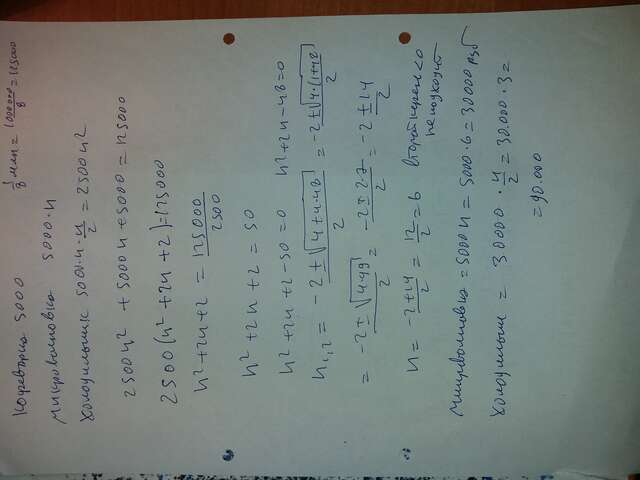 Кофеварка 5000
1/8 млн = 1000000/8 = 125000
микроволновка 5000·н
Холодильник 5000·н·н/2 = 2500н²
2500н² + 5000н + 5000 = 125000
2500(н² + 2н + 2) = 125000
н² + 2н + 2 = 125000/2500
н² + 2н + 2 = 50
н² + 2н + 2 - 50 = 0 н² + 2н - 48 = 0
н₁,₂ = -2 ± √(4 + 4·48)/2 = -2 ± √(4·(1+48))/2
= -2 ± √(4·49)/2 = -2 ± 2·7/2 = -2 ± 14/2
н = -2 + 14/2 = 12/2 = 6 второй корень < 0
не подходит
микроволновка = 5000н = 5000·6 = 30000 руб
Холодильник = 30000 · н/2 = 30.000·3 =
= 90.000